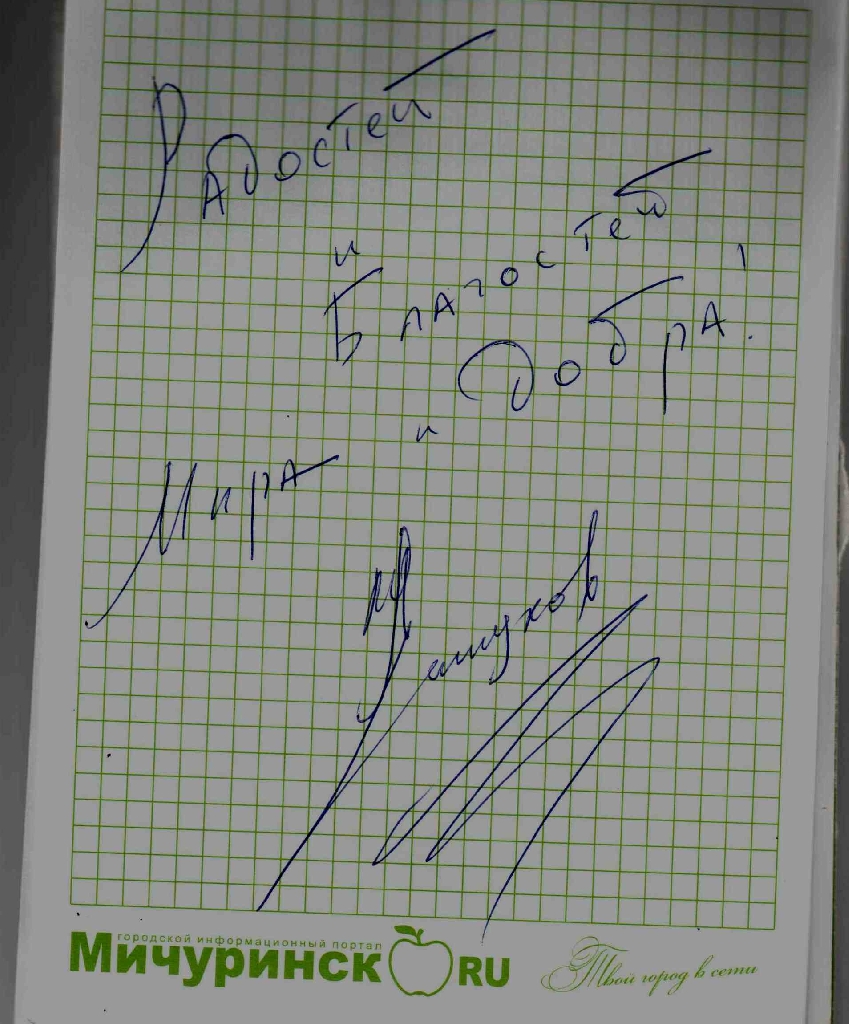 Радостей
и
Благостей
Мира
и
Добра!
городской информационный портал
Мичуринск RU
Твой город в сети